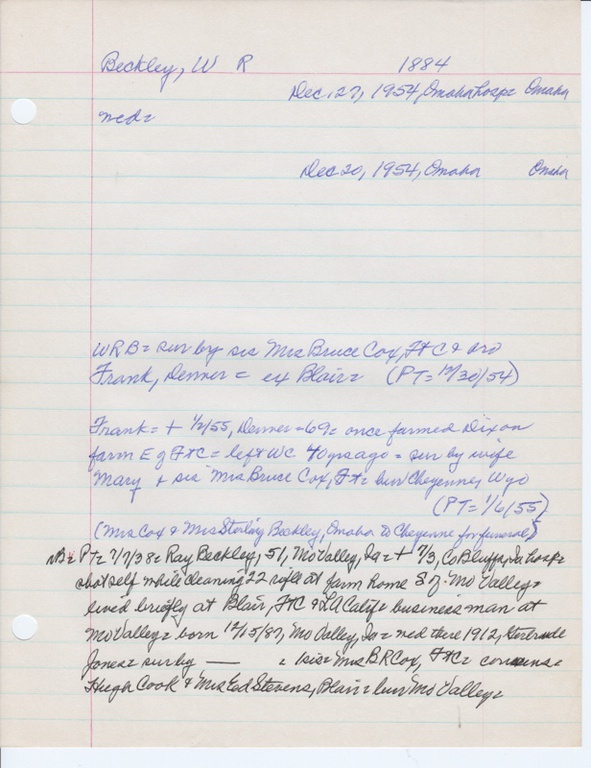 Beckley, W R 1884
Dec. 27, 1954, Omaha hosp= Omaha
med=
Dec 20, 1954, Omaha Omaha
WRB= sur by sis Mrs Bruce Cox, Ft C & bro
Frank, Denver = ex Blair= (PT= 12/30/54)
Frank= + 1/2/55, Denver =69= once farmed Dixon
farm E of Ft C= left WC 40 yrs ago = sur by wife
Mary & sis Mrs Bruce Cox, Ft= bur Cheyenne, Wyo
(PT= 1/6/55)
(Mrs Cox & Mrs Sterling Beckley, Omaha to Cheyenne for funeral)
NB= PT= 7/7/38= Ray Beckley, 51, Mo Valley, Ia= + 7/3, Co Bluffs, Ia hosp=
shot self while cleaning 22 rifle at farm home S of Mo Valley=
lived briefly at Blair, Ft C & LA Calif= business man at
Mo Valley= born 12/15/87, Mo Valley, Ia= med there 1912, Gertrude
Jones= sur by — = sis= Mrs B R Cox, Ft C= cousins=
Hugh Cook & Mrs Ed Stevens, Blair= bur Mo Valley=